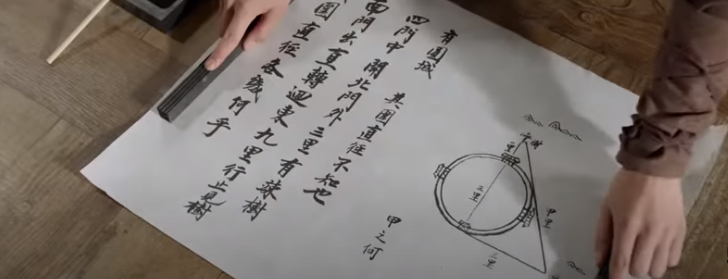 有圓城 其圓直徑不知也
四門中開北門外三里有株樹
南門出直轉迴東九里行止見樹
圓直徑各幾何乎
甲之何
三里
甲里
三里